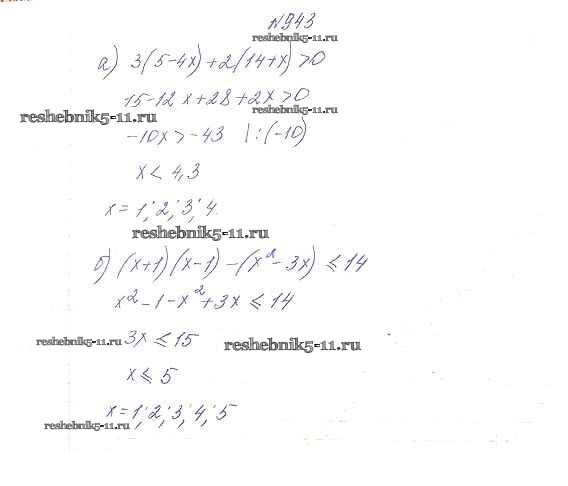 №943
reshebnik5-11.ru
а) 3(5-4x)+2(14+x)>0
15-12x+28+2x>0
reshebnik5-11.ru
reshebnik5-11.ru
-10x>-43 |:(-10)
x<4,3
x=1; 2; 3; 4.
reshebnik5-11.ru
б) (x+1)(x-1)-(x²-3x)≤14
x²-1-x²+3x≤14
3x≤15
reshebnik5-11.ru
reshebnik5-11.ru
x≤5
x=1; 2; 3; 4; 5
reshebnik5-11.ru